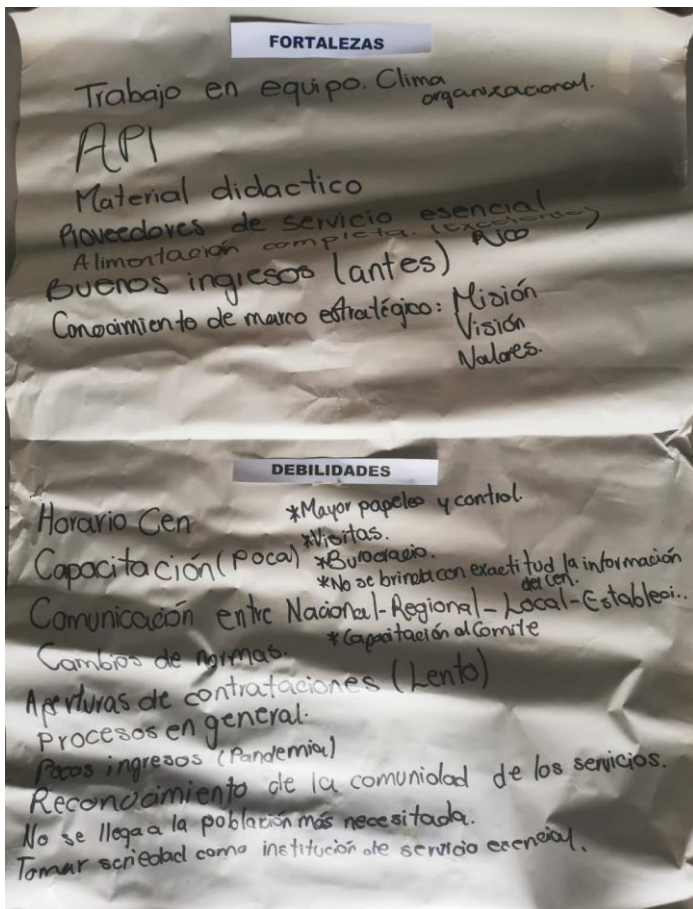 FORTALEZAS
Trabajo en equipo. Clima organizacional.
API
Material didactico
Proveedores de servicio esencial
Alimentación completa. (Excelente) Rico
Buenos ingresos (antes)
Conocimiento de marco estratégico: Misión
Visión
Valores.
DEBILIDADES
Horario Cen *Mayor papeleo y control.
*Visitas.
Capacitación (poca) *Burocracia.
*No se brinda con exactitud la información del Cen.
Comunicación entre Nacional-Regional-Local-Estableci..
*Capacitación al Comite
Cambios de normas.
Aperturas de contrataciones (Lento)
Procesos en general.
Pocos ingresos (Pandemia)
Reconocimiento de la comunidad de los servicios.
No se llega a la población más necesitada.
Tomar seriedad como institución de servicio esencial.